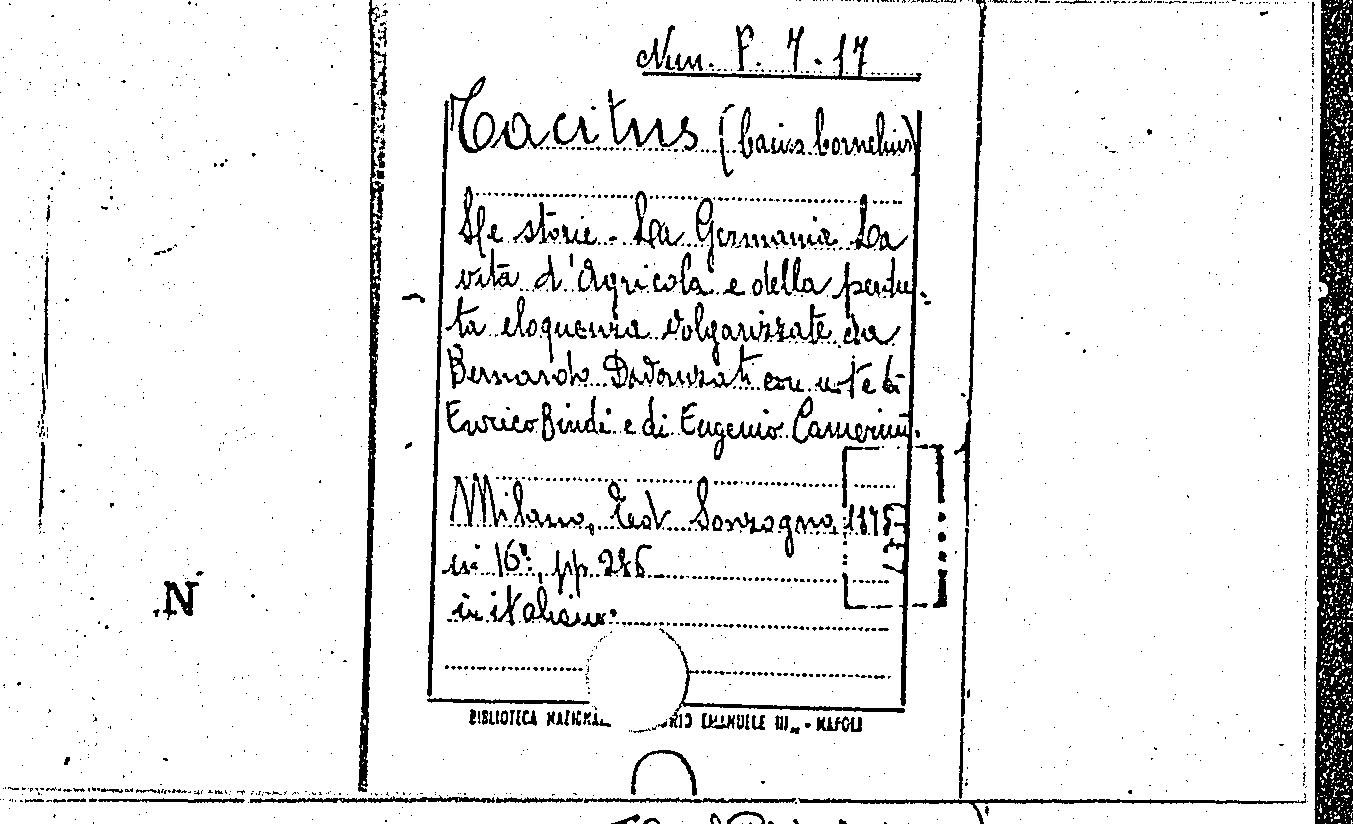 Num. F. 7. 17
Tacitus (Caius Cornelius)
Le storie. La Germania La
vita d'Agricola e della perdu-
ta eloquenza volgarizzate da
Bernardo Davanzati con note di
Enrico Bindi e di Eugenio Camerini.
Milano, Ed. Sonzogno,
in 16°, pp. 286
in italiano.
BIBLIOTECA EMANUELE III„ - NAPOLI
N